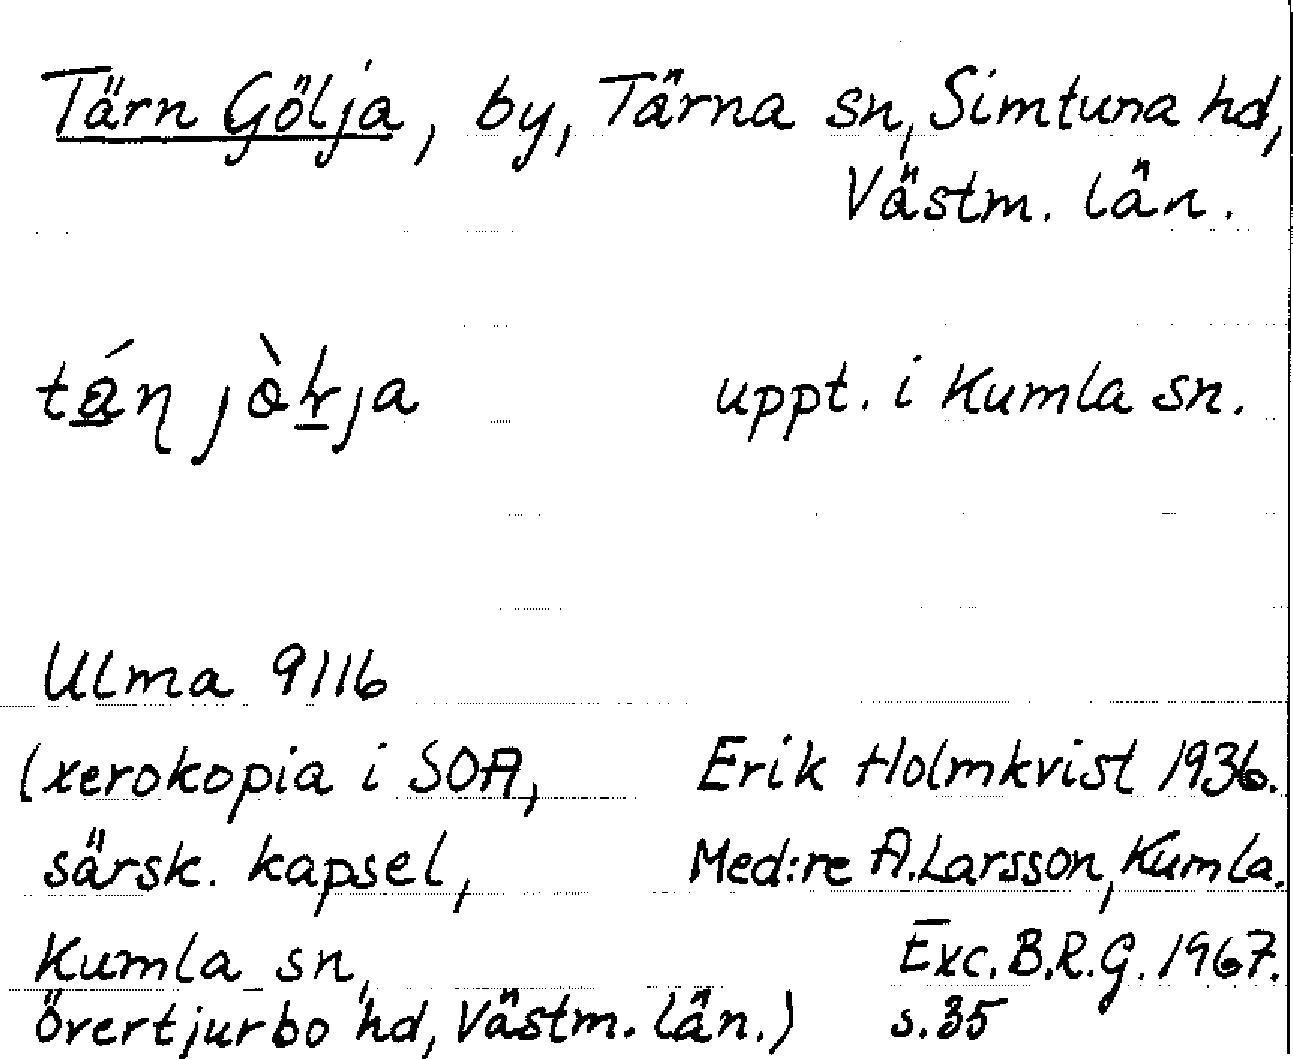 Tärn Gölja, by, Tärna sn, Simtuna hd,
Västm. län.
uppt. i Kumla sn.
Ulma 9116
(xerokopia i SOA, Erik Holmkvist 1936.
särsk. kapsel, Med:re A. Larsson, Kumla.
Kumla sn, Exc. B.R.G. 1967.
övertjurbo hd, Västm. län.) s. 35